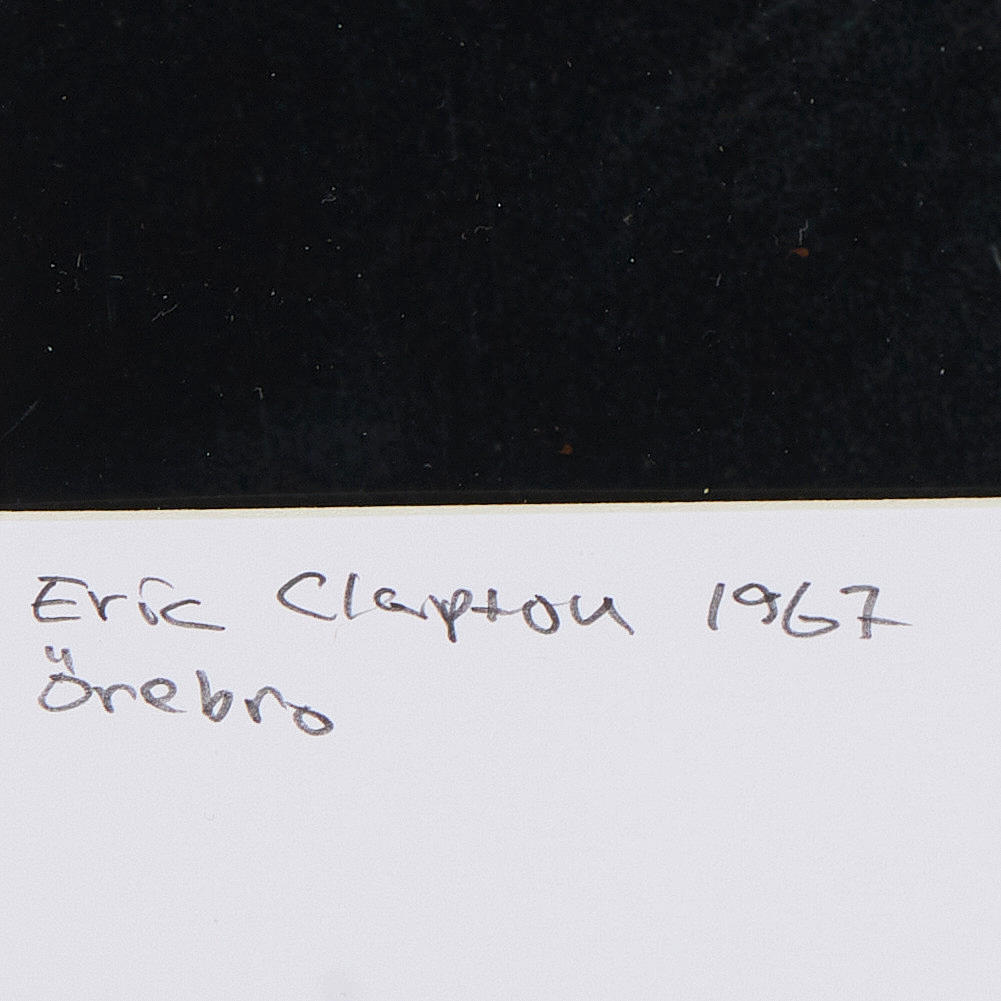 Eric Clapton 1967
Örebro